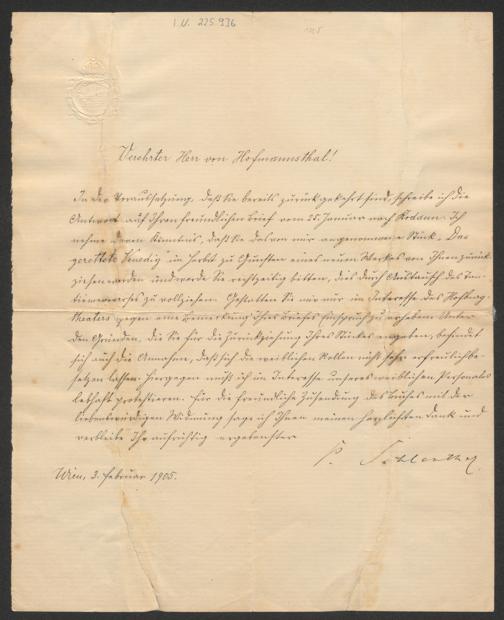 I.N. 225.936
Verehrter Herr von Hofmannsthal!
In der Voraussetzung, daß Sie bereits zurückgekehrt sind, schreibe ich die
Antwort auf Ihren freundlichen Brief vom 25. Januar nach Rodaun. Ich
nehme davon Kenntnis, daß Sie das von mir angenommene Stück „Das
gerettete Venedig" im Herbst zu Gunsten eines neuen Werkes von Ihnen zurück
ziehen werden und werde Sie rechtzeitig bitten, dies durch Austausch des Tan
tiemenreverses zu vollziehen. Gestatten Sie mir nur im Interesse des Hofburg
theaters gegen eine Bemerkung Ihres Briefes Einspruch zu erheben. Unter
den Gründen, die Sie für die Zurückziehung Ihres Stückes angeben, befindet
sich auch die Annahme, daß sich die weiblichen Rollen nicht sehr erfreulich be
setzen lassen. Hiergegen muß ich im Interesse unseres weiblichen Personales
lebhaft protestieren. Für die freundliche Zusendung des Buches mit der
liebenswürdigen Widmung sage ich Ihnen meinen herzlichsten Dank und
verbleibe Ihr aufrichtig ergebenster
P. Schlenther
Wien, 3. Februar 1905.